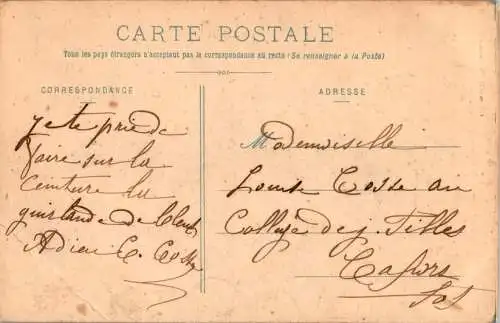 CARTE POSTALE
Tous les pays étrangers n'acceptent pas la correspondance au recto (Se renseigner à la Poste)
CORRESPONDANCE
je te prie de
faire sur la
ceinture la
guirlande de
Adieu E. Cosse
ADRESSE
Mademoiselle
Louise Cosse au
Collège de j. filles
Cahors
Lot